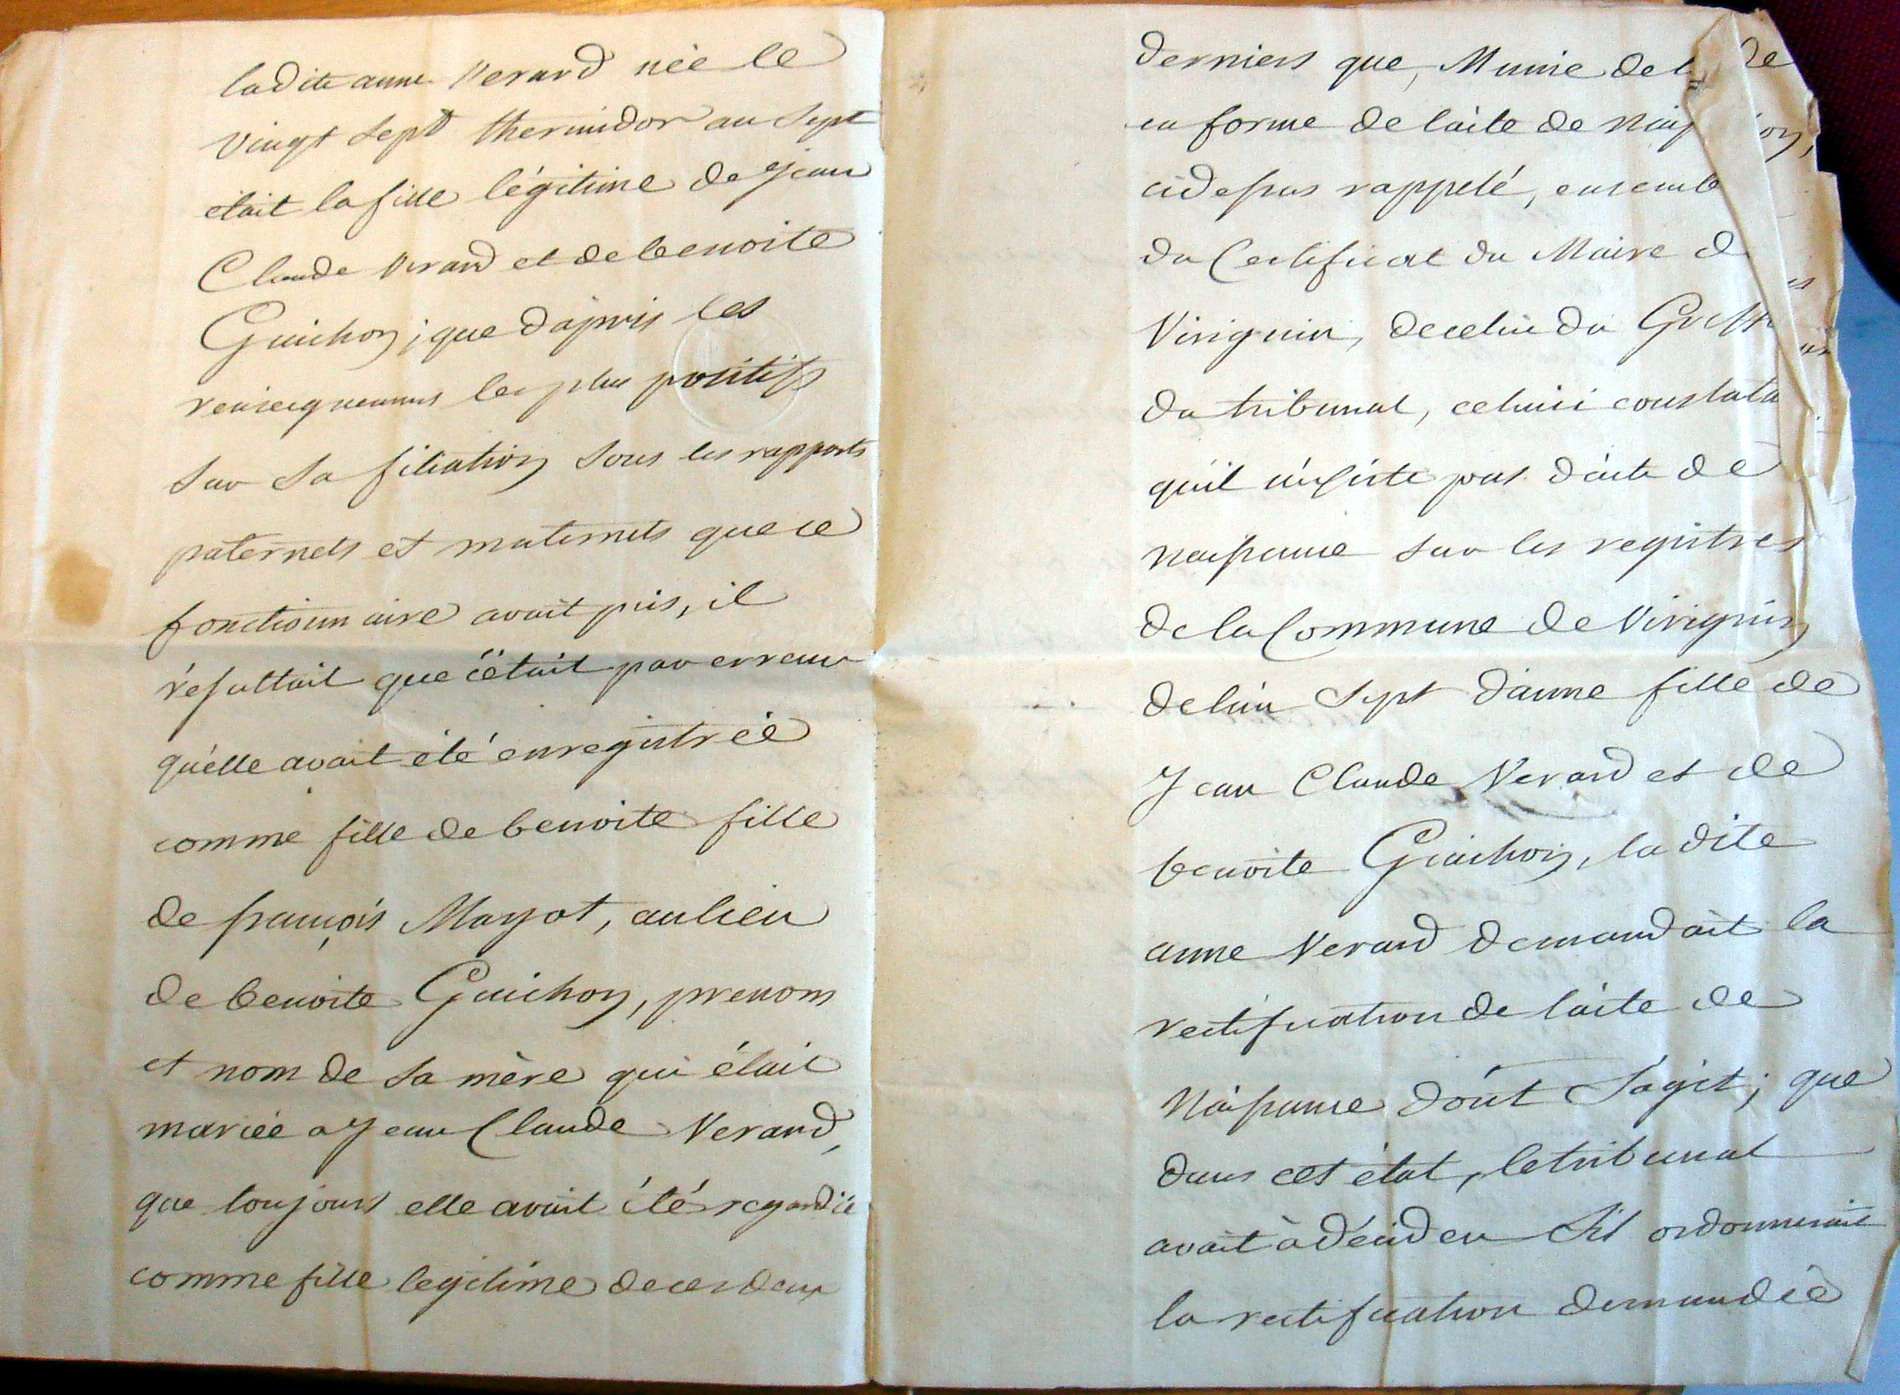 ladite anne Verard née le
vingt sept thermidor an Sept
était la fille légitime de Jean
Claude Verard et de benoite
Guichon ; que d'après les
renseignemens les plus positifs
sur sa filiation sous les rapports
paternels et maternels que ce
fonctionnaire avait pris, il
résultait que c'était par erreur
qu'elle avait été enregistrée
comme fille de benoite fille
de françois Mayot, au lieu
de benoite Guichon, prenom
et nom de sa mère qui était
mariée a Jean Claude Verard,
que toujours elle avait été regardée
comme fille legitime de ces deux
derniers que, Munie de
en forme de l'acte de
cidessus rappelé, ensemb
du Certificat du Maire d
Virignin, de celui du Greff
du tribunal, celuici constata
qu'il n'existe pas d'acte de
naissance sur les registres
de la Commune de Virignin
de l'an Sept d'anne fille de
Jean Claude Verard et de
benoite Guichon, la dite
anne Verard demandait la
rectification de l'acte de
Naissance dont s'agit ; que
dans cet état, le tribunal
avait à décider S'il ordonnerait
la rectification demandée